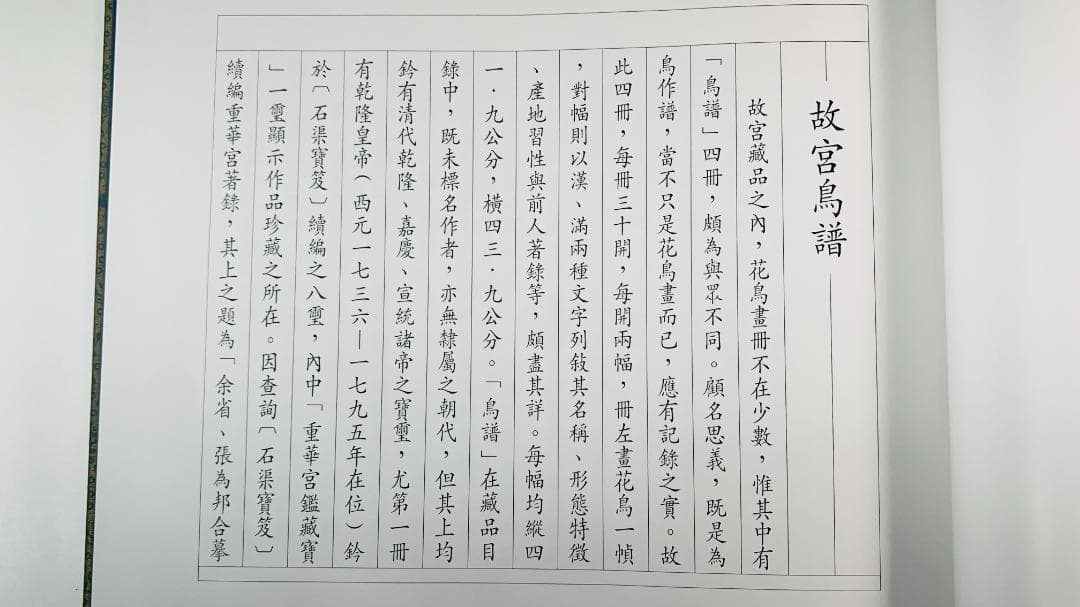 故宮鳥譜
故宮藏品之內，花鳥畫冊不在少數，惟其中有
「鳥譜」四冊，頗為與眾不同。顧名思義，既是為
鳥作譜，當不只是花鳥畫而已，應有記錄之實。故
此四冊，每冊三十開，每開兩幅，冊左畫花鳥一幀
，對幅則以漢、滿兩種文字列敍其名稱、形態特徵
、產地習性與前人著錄等，頗盡其詳。每幅均縱四
一．九公分，橫四三．九公分。「鳥譜」在藏品目
錄中，既未標名作者，亦無隸屬之朝代，但其上均
鈐有清代乾隆、嘉慶、宣統諸帝之寶璽，尤第一冊
有乾隆皇帝（西元一七三六—一七九五年在位）鈐
於〔石渠寶笈〕續編之八璽，內中「重華宮鑑藏寶
」一璽顯示作品珍藏之所在。因查詢〔石渠寶笈〕
續編重華宮著錄，其上之題為「余省、張為邦合摹